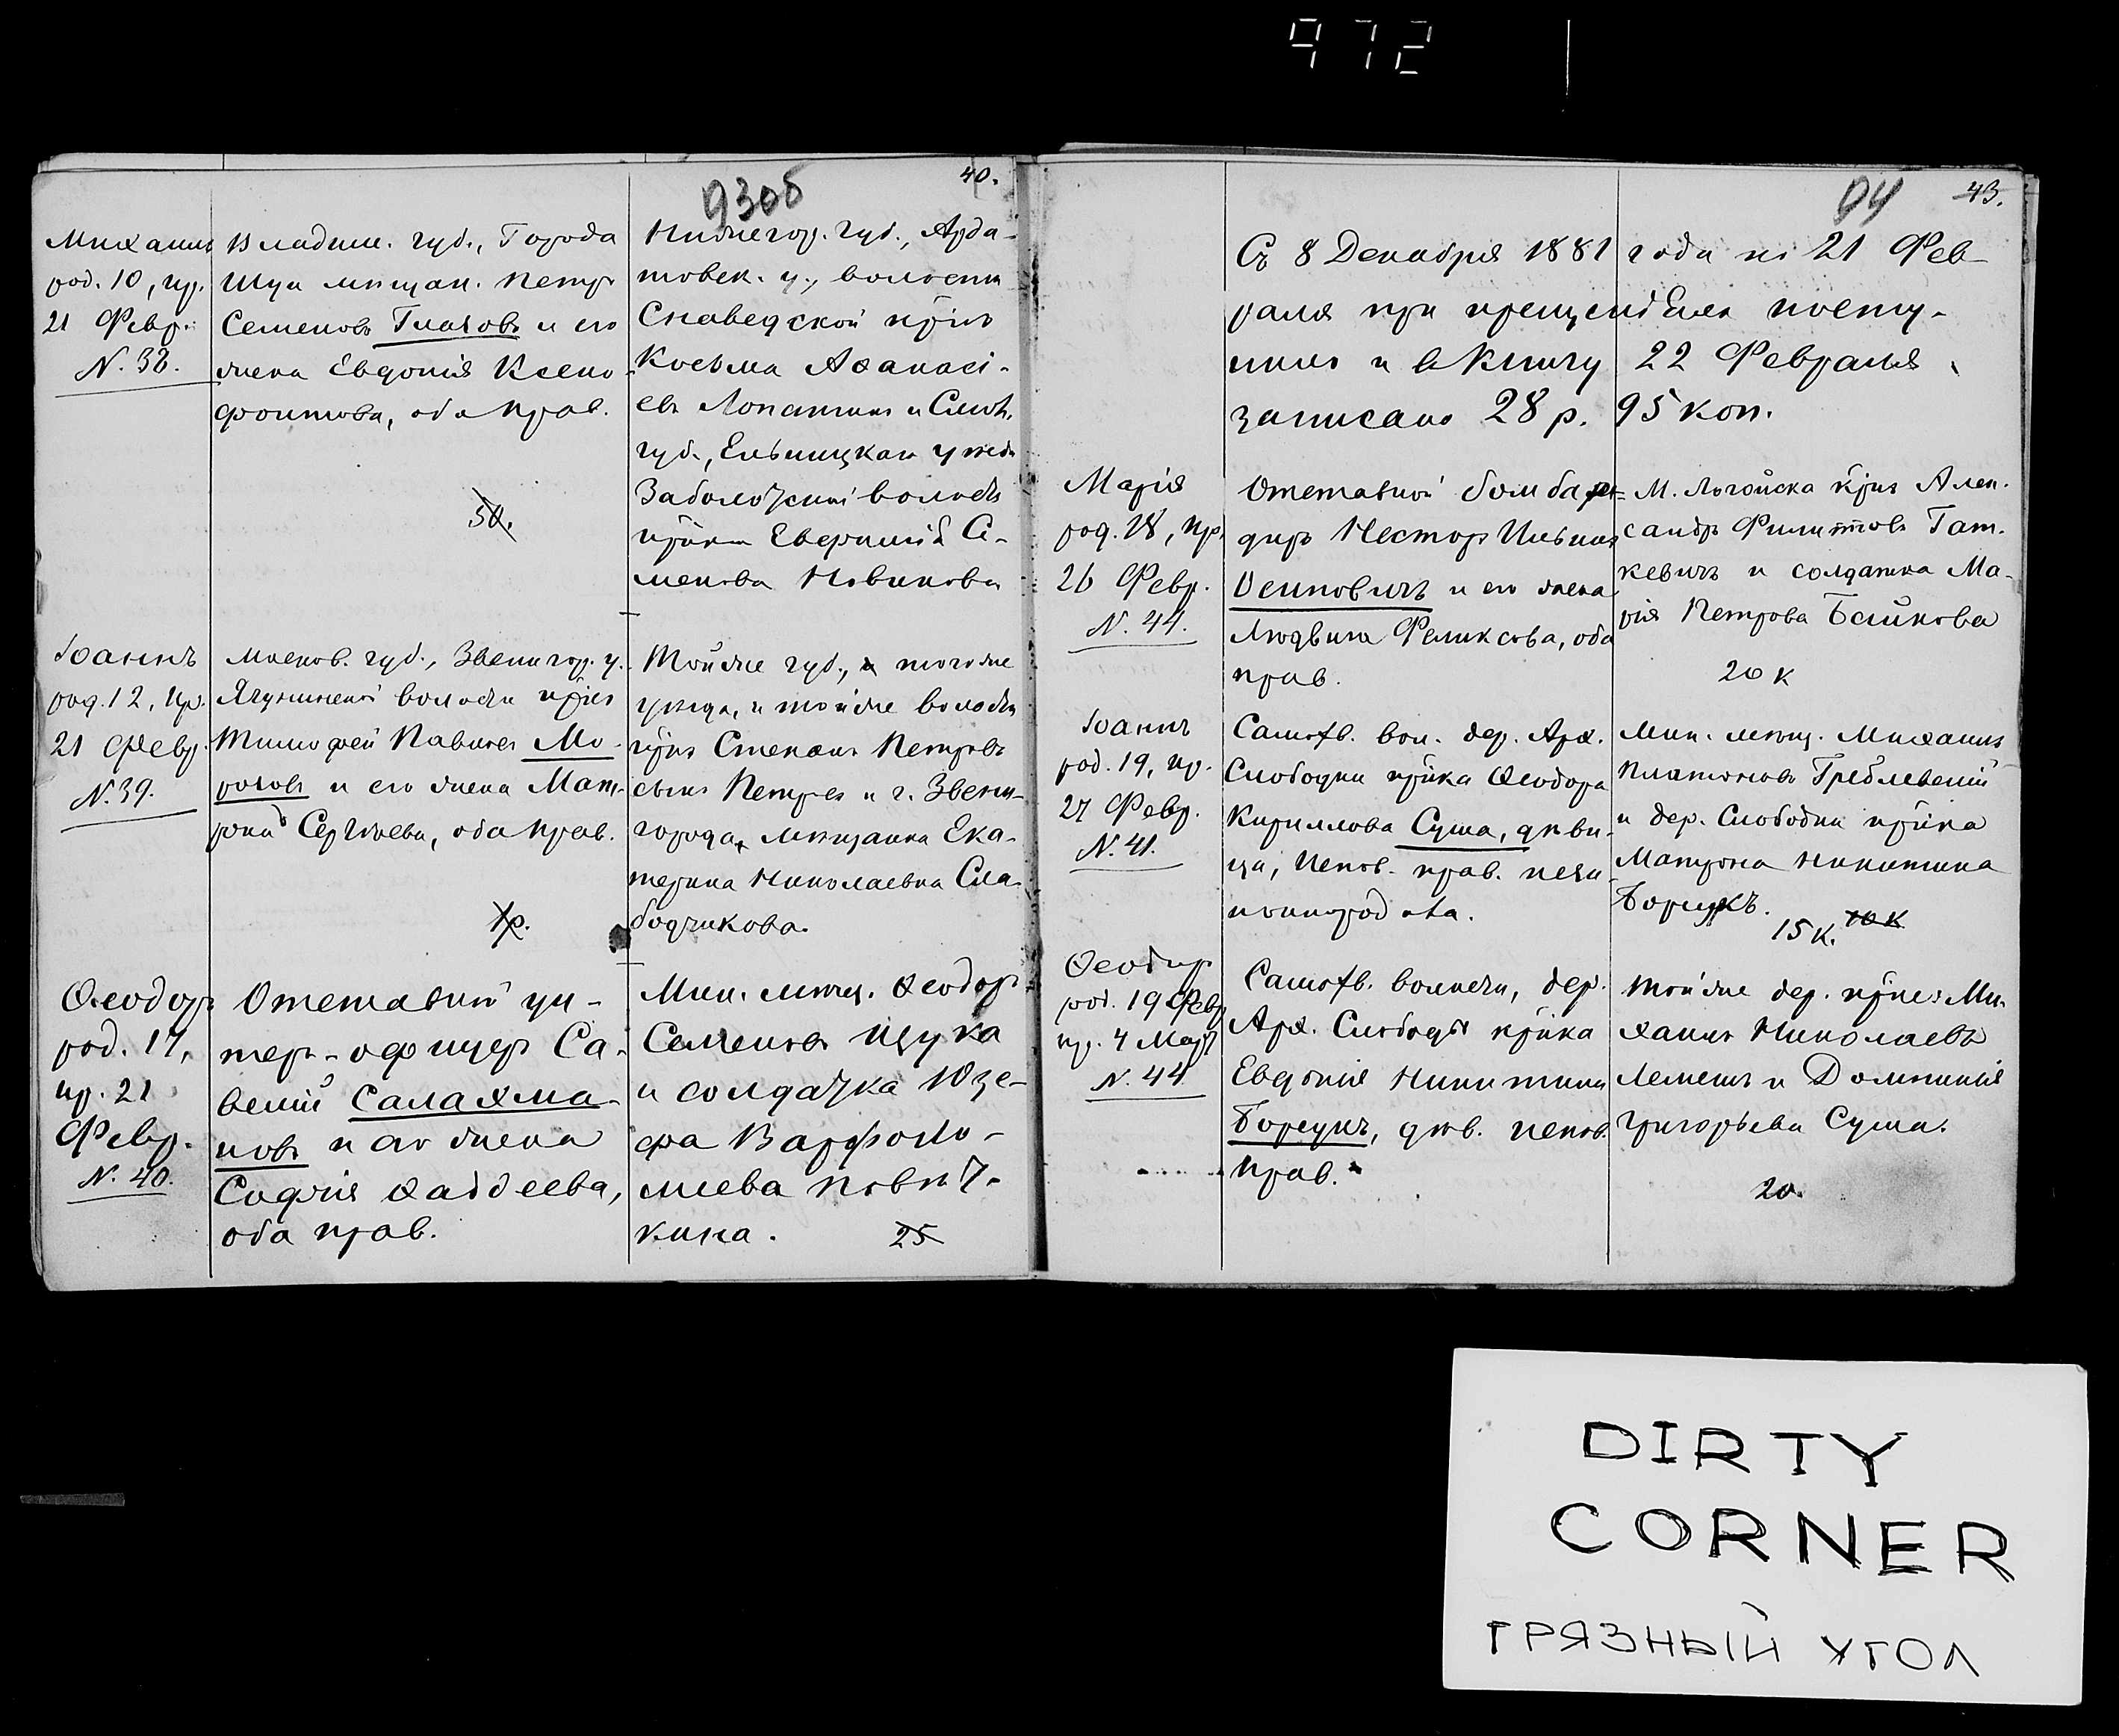 972
93об
40.
Михаилъ
род. 10, кр.
21 Февр.
N. 38.
Владим. губ., Города
Шуи мѣщан. Петръ
Семеновъ и его
жена Евдокія Ксено-
фонтова, оба прав.
50.
Нижегор. губ., Арда-
товск. у., волости
кр̃інъ
Козьма Аѳанасі-
евъ Лопатинъ и Смол.
губ., Ельницкаго уѣзда
волости
кр̃інка Евфимія Се-
менова Новикова
Іоаннъ
род. 12, кр.
21 Февр.
N. 39.
Москов. губ., Звенигор. у.
волости кр̃інъ
Тимофей Павловъ Мо-
розовъ и его жена Мат-
рона Сергѣева, оба прав.
1р.
Той же губ., того же
уѣзда, и той же волости
кр̃інъ Степанъ Петровъ
сынъ Петровъ и г. Звени-
города, мѣщанка Ека-
терина Николаевна Сла-
бодчикова.
Ѳеодоръ
род. 17,
кр. 21
Февр.
N. 40.
Отставный ун-
теръ-офицеръ Са-
велій Салахма-
новъ и его жена
Софія Ѳаддеева,
оба прав.
Мин. мѣщ. Ѳеодоръ
Семеновъ Щука
и солдатка Юзе-
фа Варфоло-
меева
кина. 25
94
43.
Съ 8 Декабря 1881 года по 21 Фев-
раля при крещеніяхъ посту-
пило и въ Книгу 22 Февраля
записано 28 р. 95 коп.
Марія
род. 18, кр.
26 Февр.
N. 44.
Отставной бомбар-
диръ Несторъ Ильинъ
Осиповичъ и его жена
Людвига Феликсова, оба
прав.
М. Логойска кр̃інъ Алек-
сандръ Филипповъ Гат-
кевичъ и солдатка Ма-
рія Петрова Байкова
20 к
Іоаннъ
род. 19, кр.
27 Февр.
N. 41.
Самохв. вол. дер. Арх.
Слободки кр̃інка Ѳеодора
Кириллова Суша, дѣви-
ца, испов. прав. неза-
коннород
Мин. мѣщ. Михаилъ
Платоновъ Греблевскій
и дер. Слободки кр̃інка
Матрона Никитина
Борщукъ.
15 к. 10 к
Ѳеодоръ
род. 19 Февр
кр. 4 Март
N. 44
Самохв. волости, дер.
Арх. Слободы кр̃інка
Евдокія Никитина
Борщукъ, дѣв. испов.
прав.
Той же дер. кр̃інъ Ми-
хаилъ Николаевъ
Лемешъ и Домникія
Григорьева Суша.
20.
DIRTY
CORNER
ГРЯЗНЫЙ УГОЛ